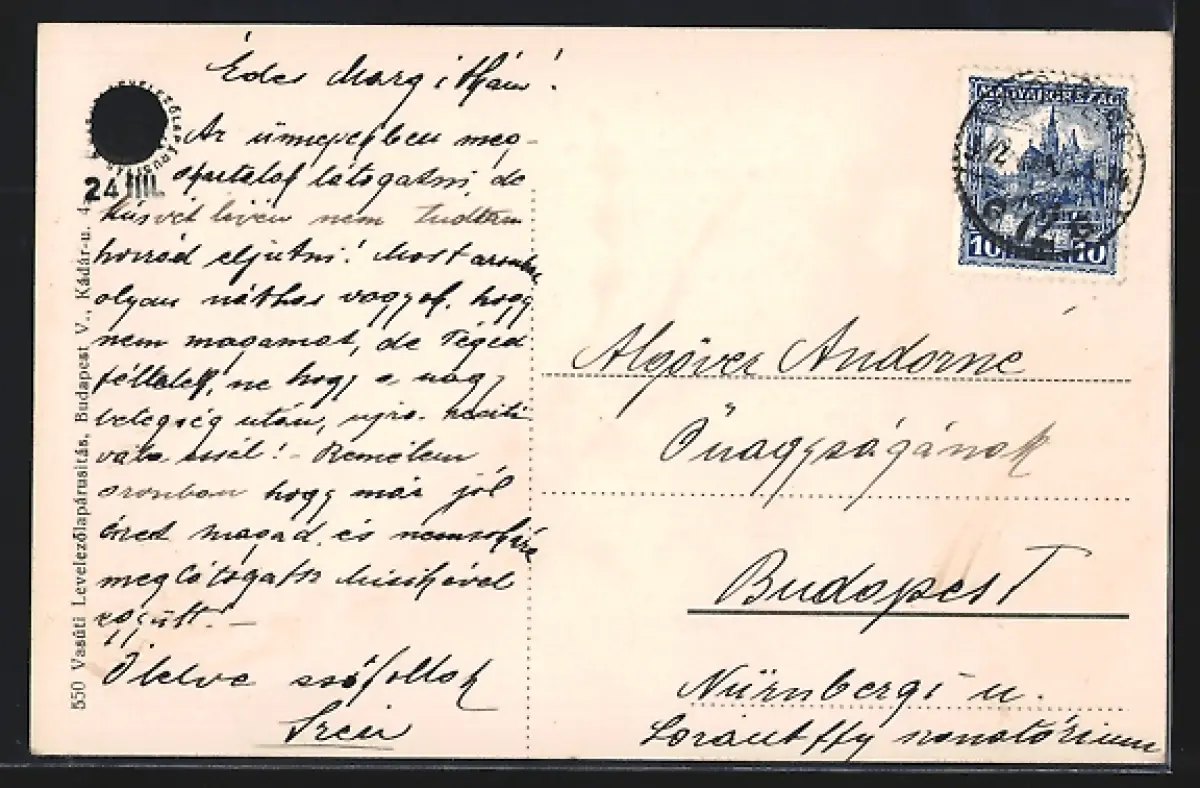 Édes Margitkám!
Az ünnepekben meg-
akartalak látogatni, de
húsvét lévén nem tudtam
hozzád eljutni! Most azonban
olyan náthás vagyok, hogy
nem magamat, de Téged
féltelek, ne hogy a nagy
betegség után, ujra
! - Remélem
azonban hogy már jól
érzed magad, és nemsokára
meglátogatsz Misikével
együtt! -
Ölelve csókollak
MAGYARORSZÁG
10 10
Algöver Andorné
Őnagyságának
Budapest
Nürnbergi u.
Lorántffy szanatórium
24 IIII.
550 Vasúti Levelezőlapárusitás, Budapest V., Kádár-u. 4.